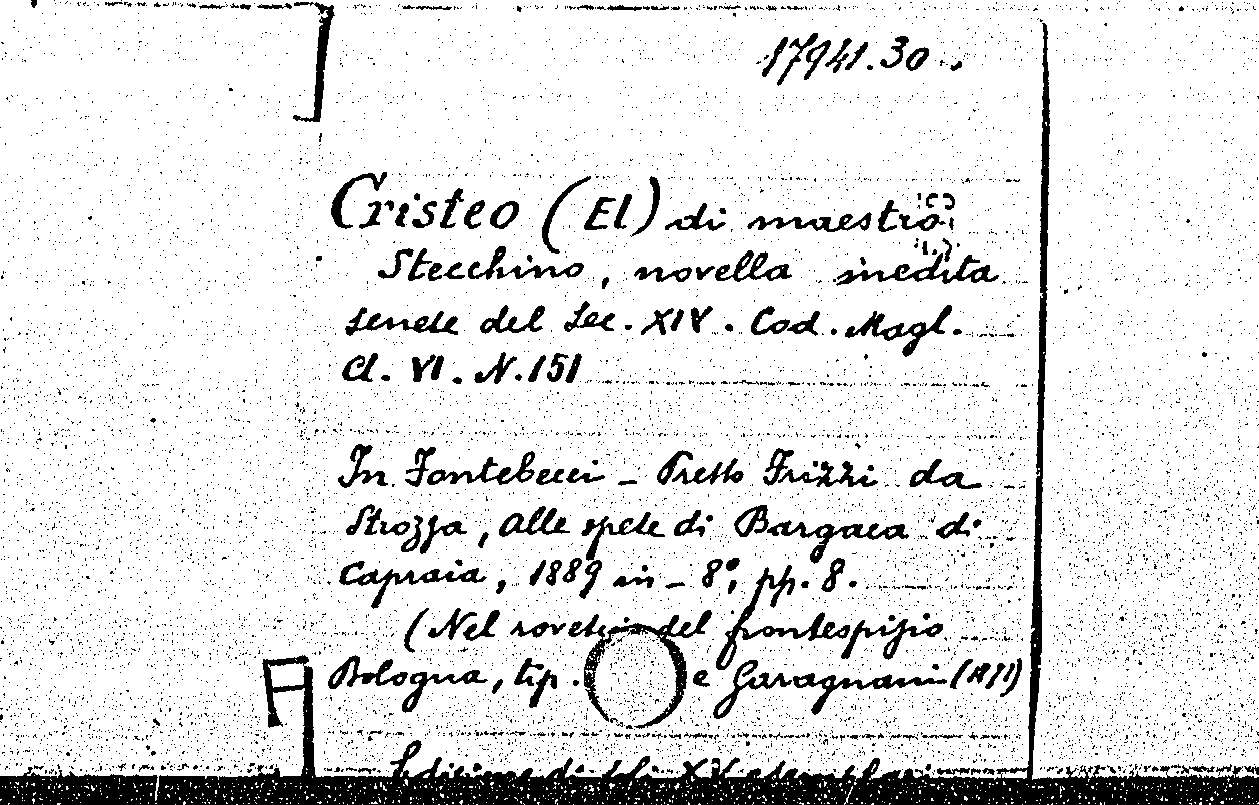 17941.30.
Cristeo (El) di maestro
Stecchino, novella inedita
senese del sec. XIV. Cod. Magl.
Cl. VI. N. 151
In Fontebecci - Presso Frizzi da
Strozza, alle spese di Bargaca di
Capraia, 1889 in - 8°, pp. 8.
(Nel rovescio del frontespizio
Bologna, tip. e Garagnani
Edizione di soli XV esemplari